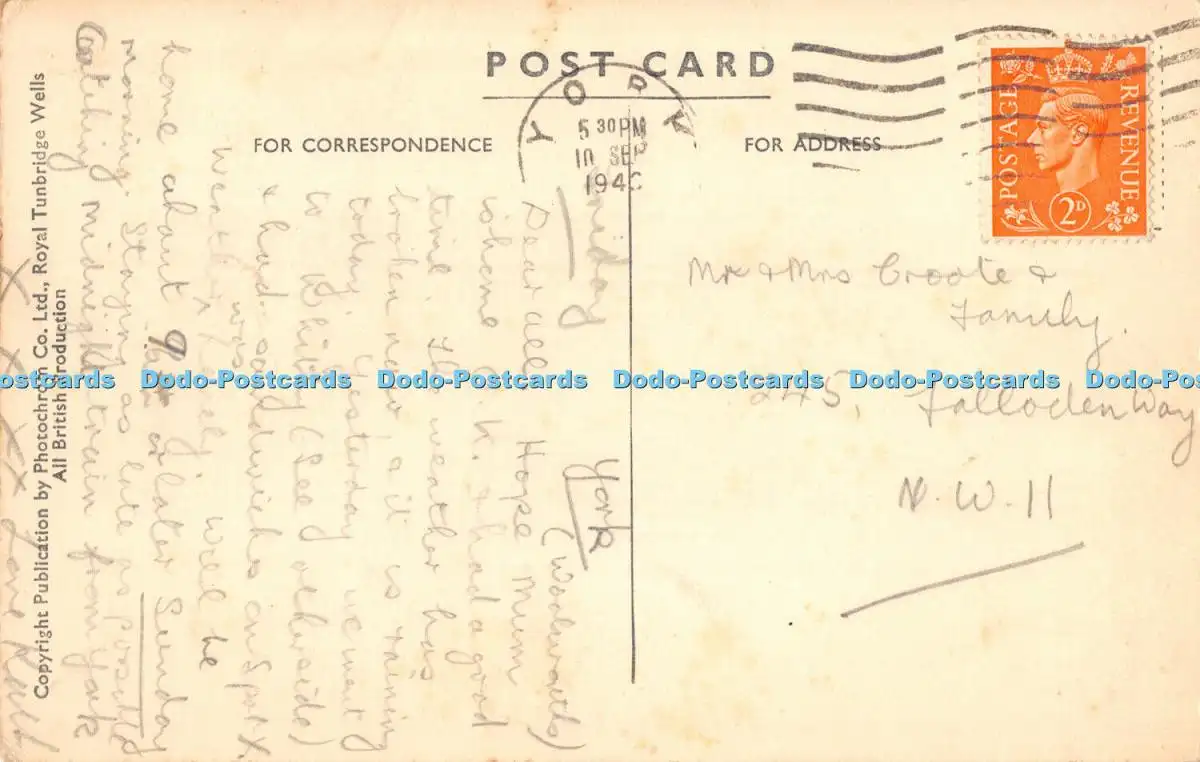 POST CARD
FOR CORRESPONDENCE
FOR ADDRESS
YORK
5 30PM
10 SEP
194
POSTAGE
REVENUE
2D
Mr & Mrs Croote &
Family.
245, Falloden Way
N.W.11
York
(Woolworths)
Friday
Dear all Hope Mum
is home O.K. & had a good
time. The weather has
broken now & it is raining
today. Yesterday we went
to Whitby (see otherside)
& had sandwiches on
Weather was lovely. will be
home about 9 or later Sunday
morning. Staying as late as possible
Catching midnight train from York
X X X X Love
Copyright Publication by Photochrom Co. Ltd., Royal Tunbridge Wells
All British Production
Dodo-Postcards Dodo-Postcards Dodo-Postcards Dodo-Postcards Dodo-Postcards